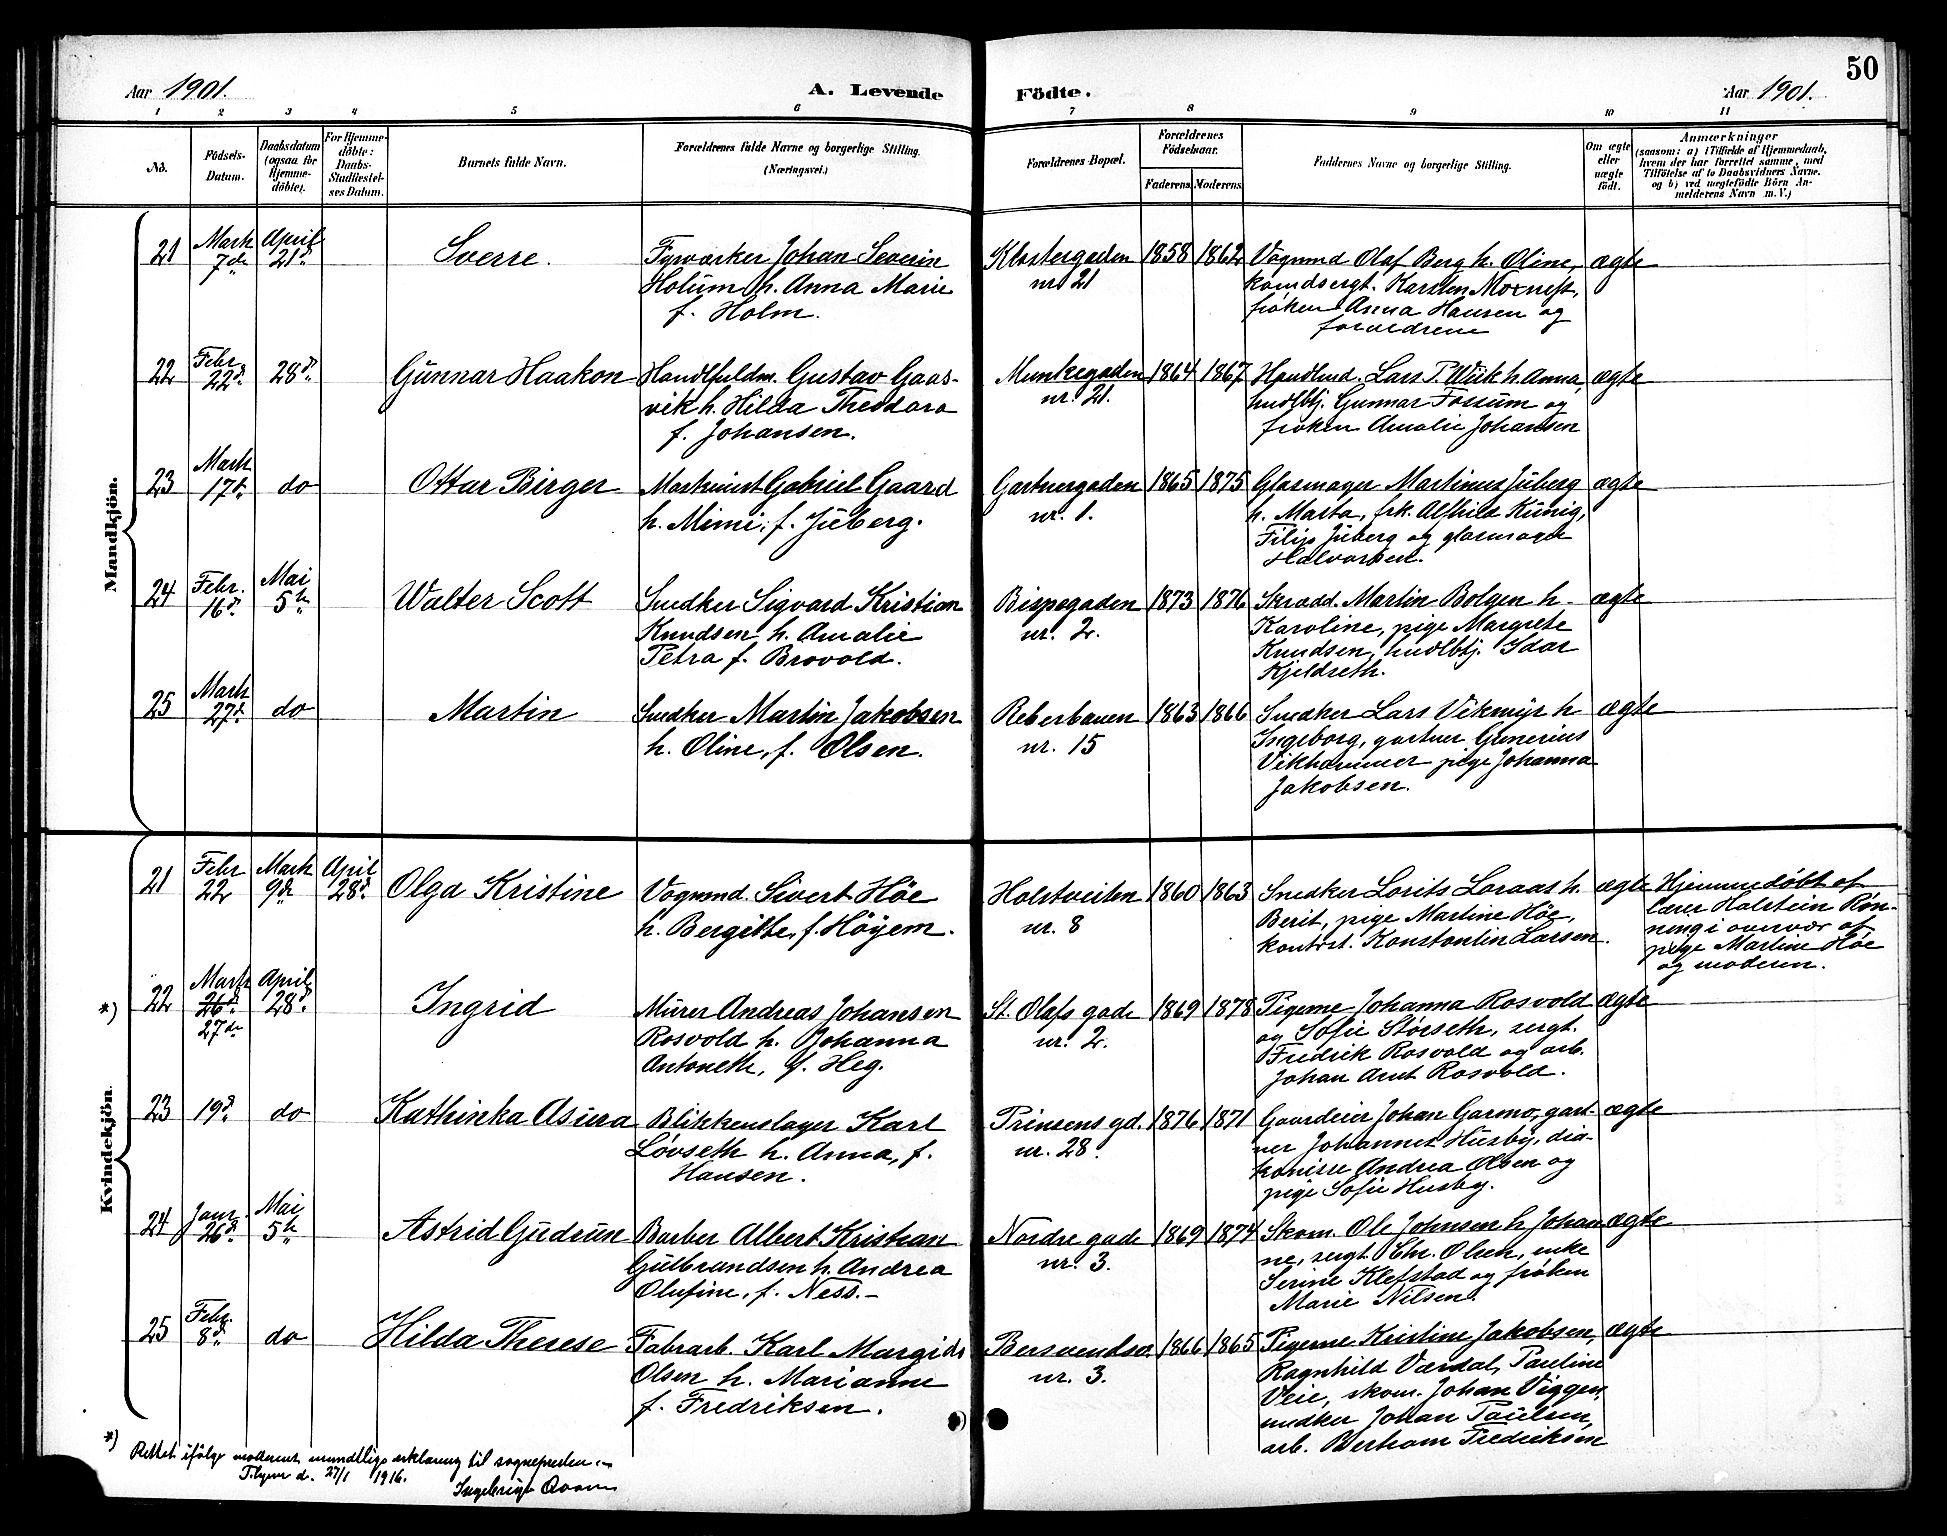 50
Aar 1901. A. Levende Födte. Aar 1901.
1 2 3 4 5 6 7 8 9 10 11
No.
Födsels-
Datum.
Daabsdatum
(ogsaa for
Hjemme-
döbte).
For Hjemme-
döbte:
Daabs-
Stadfæstel-
ses Datum.
Barnets fulde Navn.
Forældrenes fulde Navne og borgerlige Stilling.
(Næringsvei.)
Forældrenes Bopæl.
Forældrenes
Födselsaar.
Faderens. Moderens.
Faddernes Navne og borgerlige Stilling.
Om ægte
eller
uægte
födt.
Anmærkninger
(saasom: a) i Tilfælde af Hjemmedaab,
hvem der har forrettet samme, med
Tilföielse af to Daabsvidners Navne.
og b) ved uægtefödte Börn An-
melderens Navn m. V.)
Mandkjön.
21 Marts 7de April 21d Sverre.
Fyrværker Johan Severin
Holum h. Anna Marie
f. Holm.
Klostergaden
nr 21
1858 1862
Vognmd Olaf Berg h. Oline,
komdsergt. Karsten Moxness,
frøken Anna Hansen og
forældrene
ægte
22 Febr 22d 28d Gunnar Haakon
Handlfuldm. Gustav Gaas-
vik h. Hilda Theodora
f. Johansen.
Munkegaden
nr. 21.
1864 1867
Handlmd. Lars P. Wiik h. Anna,
hndlbtj. Gunnar Fossum og
frøken Amalie Johansen
ægte
23 Marts 17d do Ottar Birger
Maskinist Gabriel Gaard
h. Mimi, f. Juberg.
Gartnergaden
nr. 1.
1865 1875
Glasmager Martinus Juberg
h. Marta, frk. Alfhild Kunig,
Filip Juberg og glasmager
Halvorsen.
ægte
24 Febr. 16d Mai 5te Walter Scott
Snedker Sigvard Kristian
Knudsen h. Amalie
Petra f. Brovold.
Bispegaden
nr. 2.
1873 1876
Skrædd. Martin Bolgen h.
Karoline, pige Margrete
Knudsen, hndlbtj. Idar
Kjeldseth.
ægte
25 Marts 27d do Martin
Snedker Martin Jakobsen
h. Oline, f. Olsen.
Reberbanen
nr. 15
1863 1866
Snedker Lars Vikmyr h
Ingeborg, gartner Gunerius
Vikhammer pige Johanna
Jakobsen.
ægte
Kvindekjön.
21 Febr 22 Marts 9de April 28d Olga Kristine
Vognmd. Sivert Høe
h. Bergitte, f. Höyem.
Holstveiten
nr. 8
1860 1863
Snedker Lorits Loraas h.
Berit, pige Martine Høe,
kontrst. Konstantin Larsen.
ægte
Hjemmedøbt af
lærer Holstein Røn-
ning i overvær af
pige Martine Høe
og moderen.
*) 22 Marts 26d 27de April 28d Ingrid
Murer Andreas Johansen
Rosvold h. Johanna
Antoneth, f. Heg.
St. Olafs gade
nr. 2.
1869 1878
Pigerne Johanna Rosvold
og Sofie Størseth, sergt.
Fredrik Rosvold og arb.
Johan Arnt Rosvold.
ægte
23 19d do Kathinka Asura
Blikkenslager Karl
Løvseth h. Anna, f.
Hansen.
Prinsens gd.
nr. 28.
1876 1871
Gaardeier Johan Garmo, gart-
ner Johannes Husby, dia-
konisse Andrea Olsen og
pige Sofie Husby.
ægte
24 Janr. 26d Mai 5te Astrid Gudrun
Barber Albert Kristian
Gulbrandsen h. Andrea
Olufine, f. Ness.
Nordre gade
nr. 3.
1869 1874
Skom. Ole Johnsen h. Johan
ne, sergt. Chr. Olsen, enke
Serine Klefstad og frøken
Marie Nilsen.
ægte
25 Febr. 8d do Hilda Therese
Fabrarb. Karl Margido
Olsen h. Marianne
f. Fredriksen.
Bersvendsv.
nr. 3.
1866 1865
Pigerne Kristine Jakobsen,
Ragnhild Værdal, Pauline
Veie, skom. Johan Viggen,
snedker Johan Paulsen,
arb. Bertram Fredriksen
ægte
*)
Rettet ifølge moderens mundtlige erklæring til sognepresten
d. 27/1 1916.